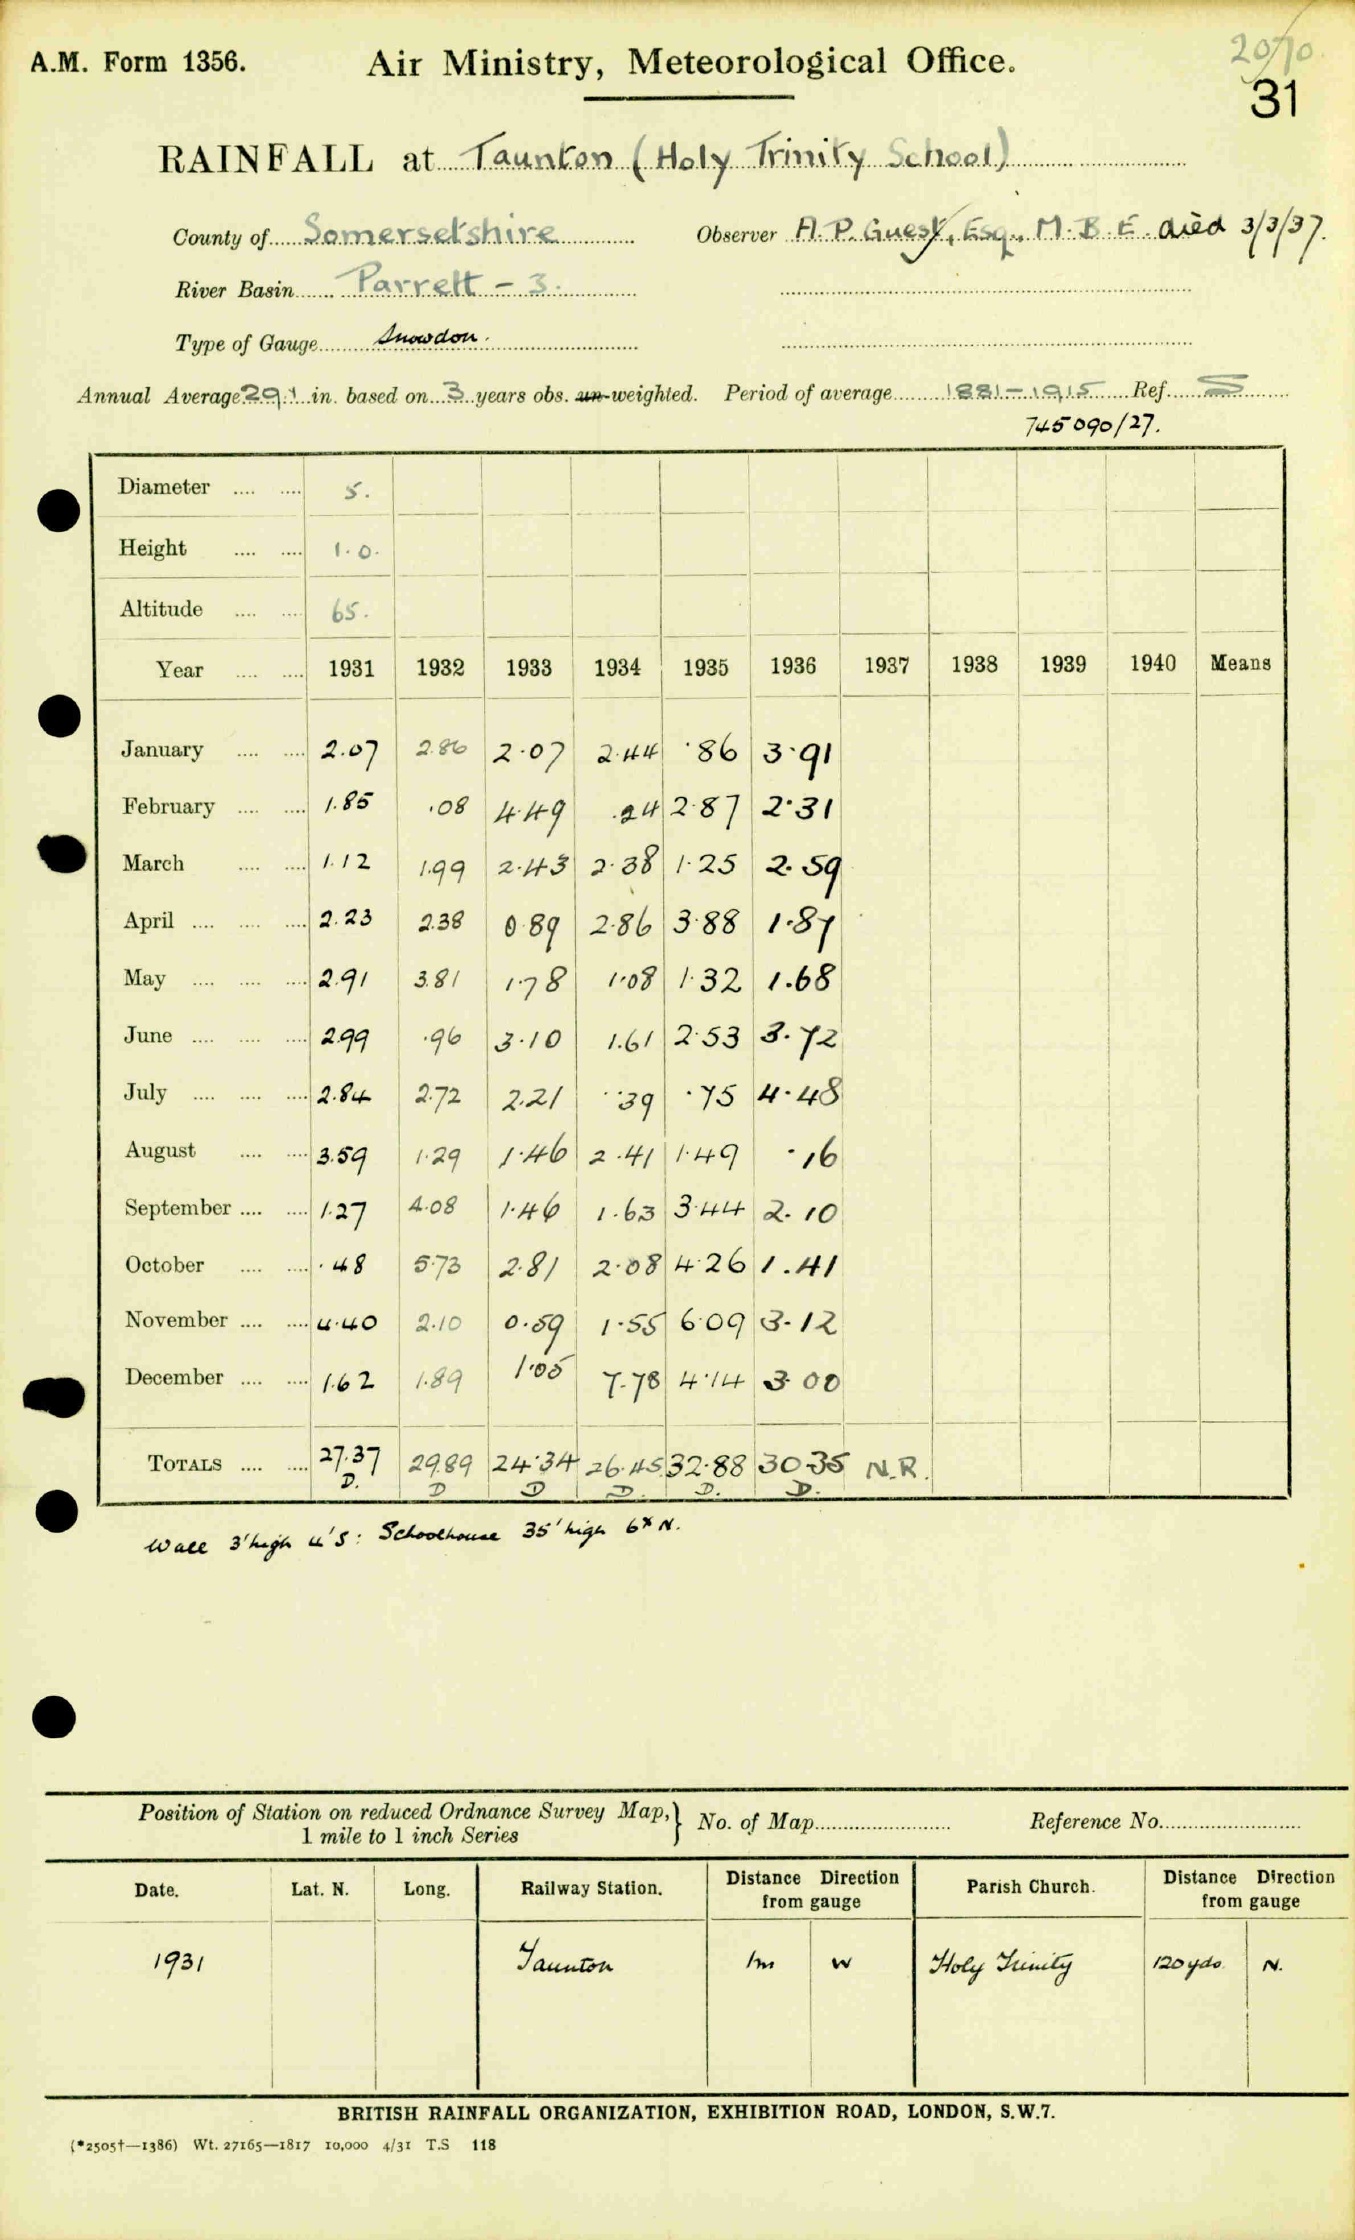 A.M. Form 1356. Air Ministry, Meteorological Office. 2070
31
RAINFALL at Taunton (Holy Trinity School)
County of Somersetshire Observer A. P. Guest, Esq., M.B.E. died 3/3/37.
River Basin Parrett - 3.
Type of Gauge Snowdon.
Annual Average 29.1 in. based on 3 years obs. un-weighted. Period of average 1881-1915 Ref. S
745090/27.
Diameter 5.
Height 1.0.
Altitude 65.
Year 1931 1932 1933 1934 1935 1936 1937 1938 1939 1940 Means
January 2.07 2.86 2.07 2.44 .86 3.91
February 1.85 .08 4.49 .24 2.87 2.31
March 1.12 1.99 2.43 2.38 1.25 2.59
April 2.23 2.38 0.89 2.86 3.88 1.87
May 2.91 3.81 1.78 1.08 1.32 1.68
June 2.99 .96 3.10 1.61 2.53 3.72
July 2.84 2.72 2.21 .39 .75 4.48
August 3.59 1.29 1.46 2.41 1.49 .16
September 1.27 4.08 1.46 1.63 3.44 2.10
October .48 5.73 2.81 2.08 4.26 1.41
November 4.40 2.10 0.59 1.55 6.09 3.12
December 1.62 1.89 1.05 7.78 4.14 3.00
TOTALS 27.37 29.89 24.34 26.45 32.88 30.35 N.R.
D. D D D. D. D.
Wall 3' high 4' S: Schoolhouse 35' high 6x N.
Position of Station on reduced Ordnance Survey Map, } No. of Map Reference No.
1 mile to 1 inch Series
Date. Lat. N. Long. Railway Station. Distance Direction from gauge Parish Church. Distance Direction from gauge
1931 Taunton 1m W Holy Trinity 120 yds. N.
BRITISH RAINFALL ORGANIZATION, EXHIBITION ROAD, LONDON, S.W.7.
(*2505†—1386) Wt. 27165—1817 10,000 4/31 T.S 118